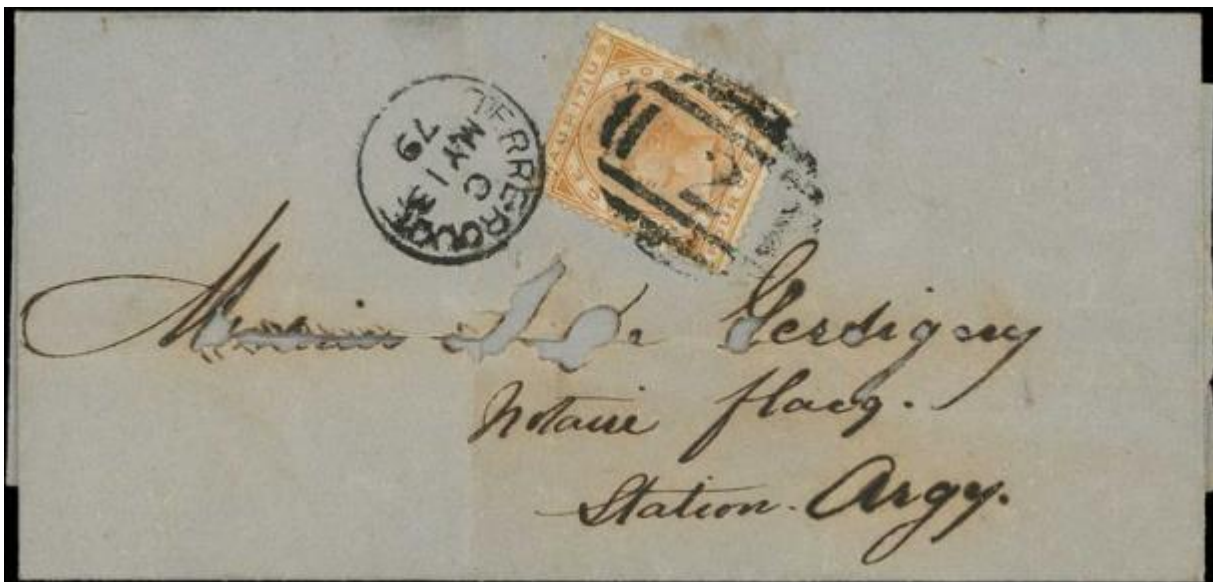 TERRE ROUGE
C
MY 13
79
MAURITIUS
2
Monsieur
de Gersigny
Notaire flacq.
Station. Argy.